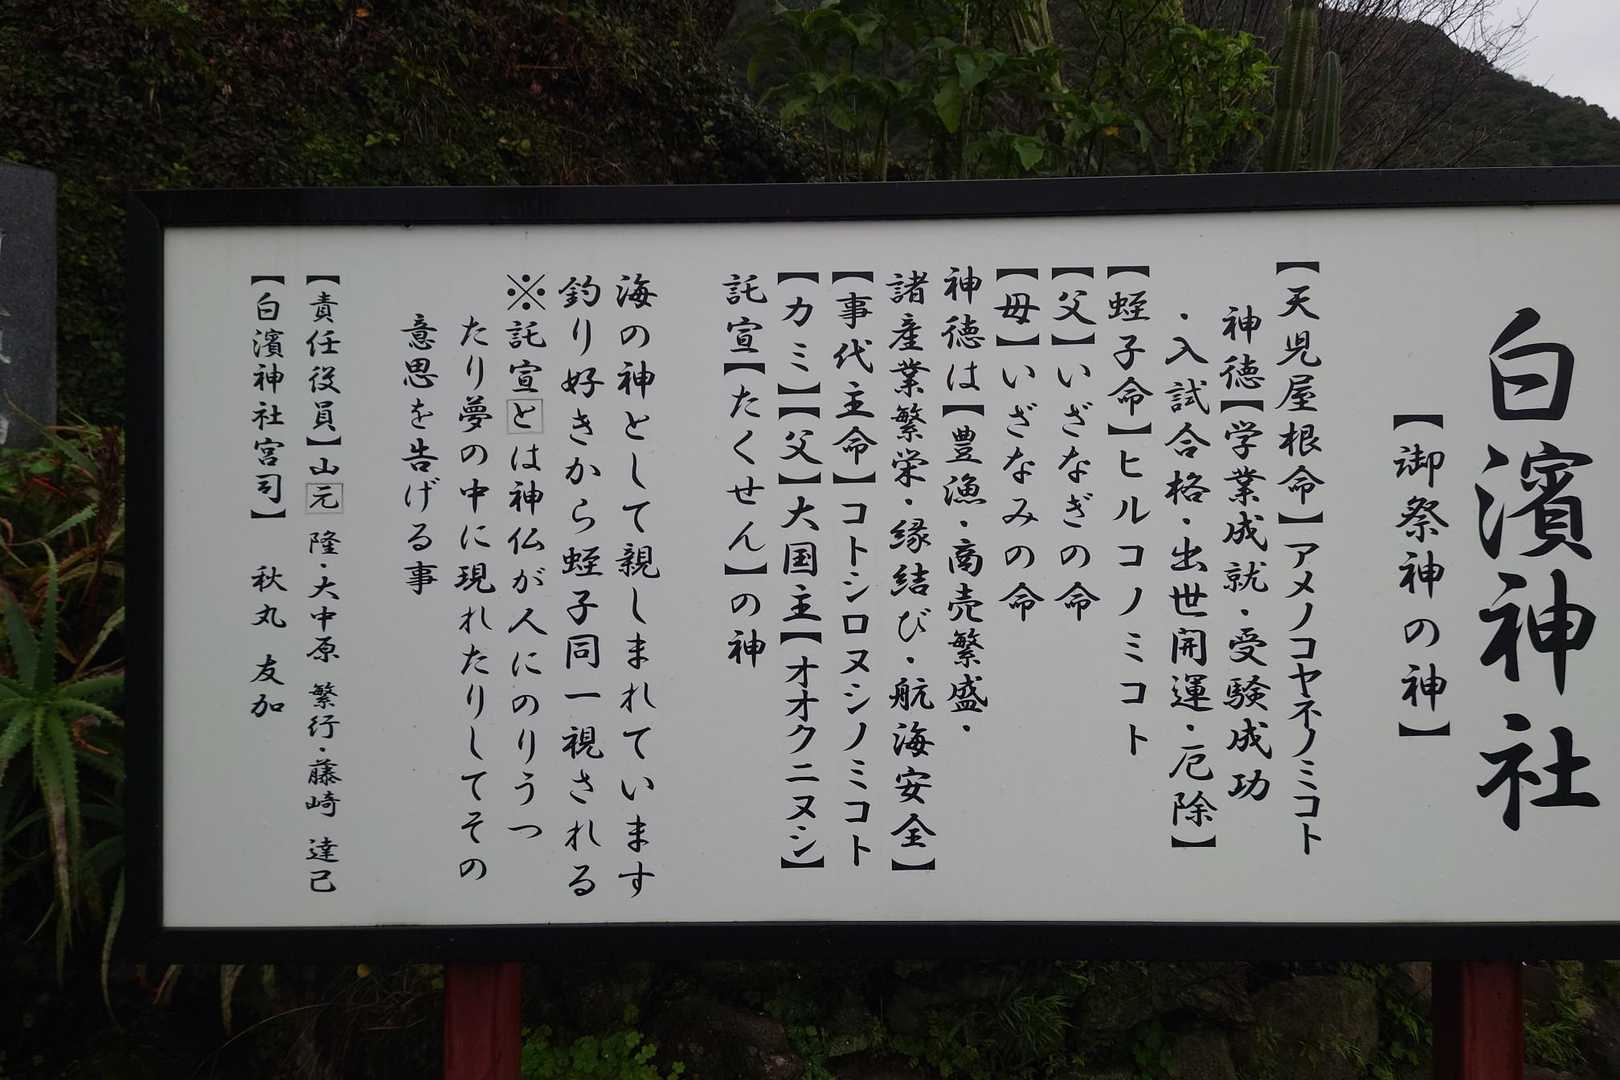 白濱神社
【御祭神の神】
【天児屋根命】アメノコヤネノミコト
神徳【学業成就・受験成功
・入試合格・出世開運・厄除】
【蛭子命】ヒルコノミコト
【父】いざなぎの命
【母】いざなみの命
神徳は【豊漁・商売繁盛・
諸産業繁栄・縁結び・航海安全】
【事代主命】コトシロヌシノミコト
【カミ】【父】大国主【オオクニヌシ】
託宣【たくせん】の神
海の神として親しまれています
釣り好きから蛭子同一視される
※託宣とは神仏が人にのりうつ
たり夢の中に現れたりしてその
意思を告げる事
【責任役員】山元 隆・大中原 繁行・藤崎 達己
【白濱神社宮司】 秋丸 友加